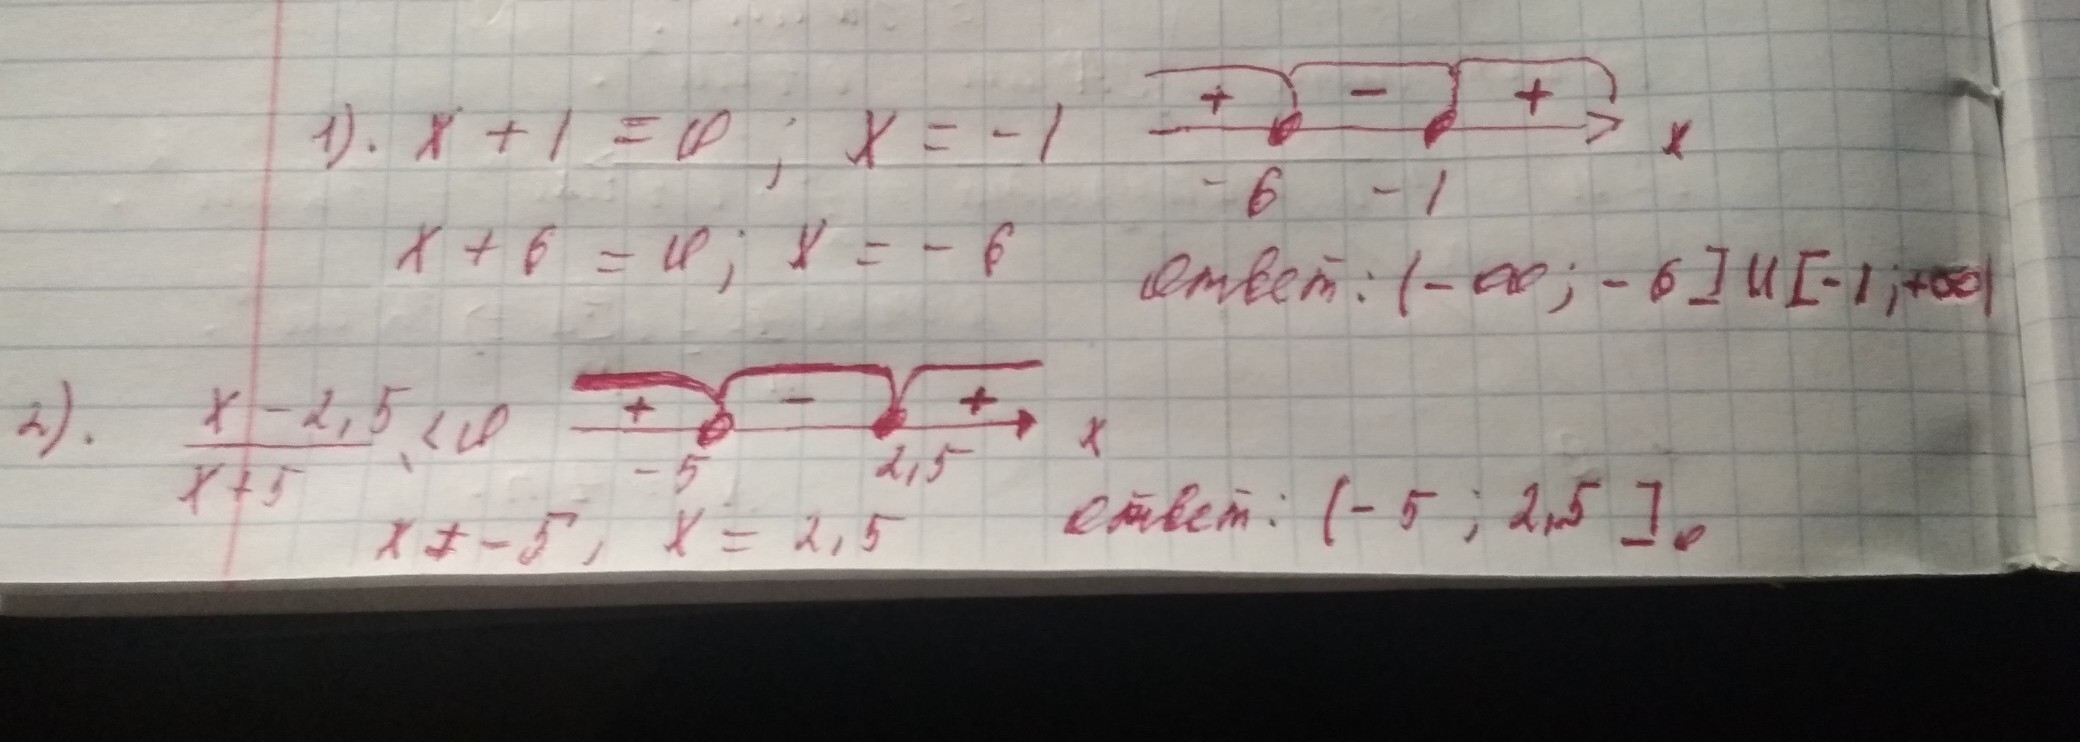 1). x + 1 = 0 ; x = -1
+ - + x
-6 -1
x + 6 = 0; x = -6
ответ: (-∞; -6] U [-1; +∞)
2). x-2,5 / x+5 < 0
+ - + x
-5 2,5
x ≠ -5, x = 2,5
ответ: (-5; 2,5].